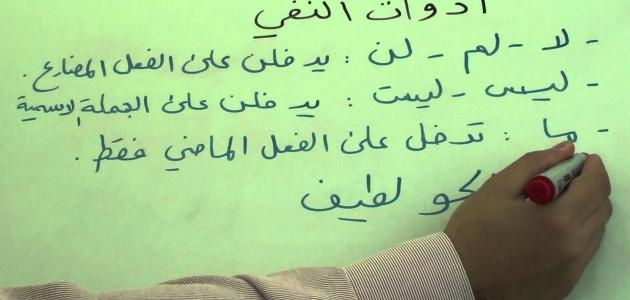 أدوات النفي
- لا - لم - لن : يدخلن على الفعل المضارع .
- ليس - ليست : يدخلن على الجملة الاسمية
- ما : تدخل على الفعل الماضي فقط .
نحو لطيف